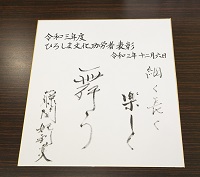 令和三年度
ひろしま文化功労者表彰
令和三年 十二月六日
細く長く
楽しく
舞う